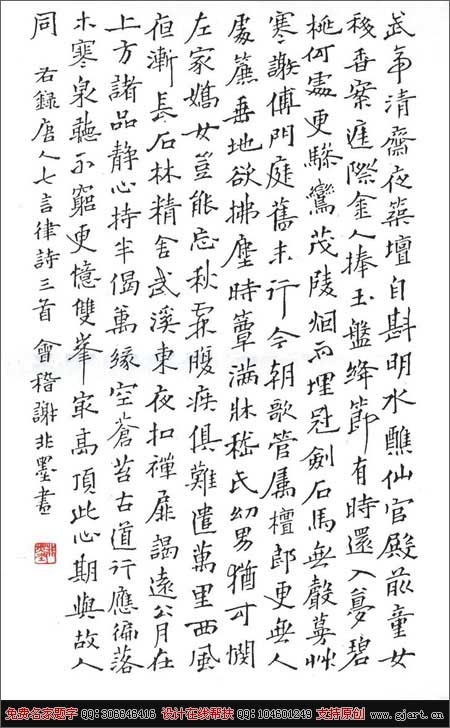 武帝清齋夜築壇自斟明水醮仙官殿前童女
移香案雲際金人捧玉盤絳節有時還入夢碧
桃何處更驂鸞茂陵烟雨埋冠劍石馬無聲蔓艸
寒謝傅門庭舊末行今朝歌管屬檀郎更無人
處簾垂地欲拂塵時簟滿牀嵇氏幼男猶可憫
左家嬌女豈能忘秋霖腹疾俱難遣萬里西風
夜漸長石林精舍武溪東夜扣禪扉謁遠公月在
上方諸品靜心持半偈萬緣空蒼苔古道行應徧落
木寒泉聽不窮更憶雙峯最高頂此心期與故人
同 右錄唐人七言律詩三首 會稽謝非墨書
免费名家题字 QQ:306646416 设计在线帮扶 QQ:104601249 支持原创 www.gjart.cn